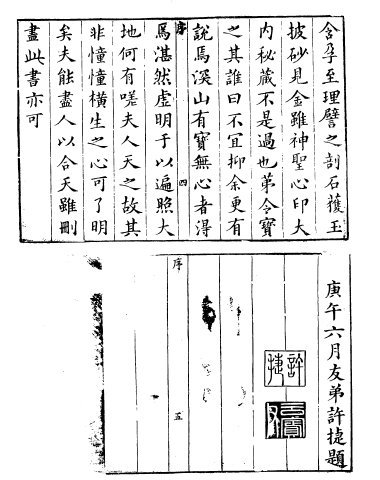 含孕至理譬之剖石獲玉
披砂見金雖神聖心印大
內秘藏不是過也第今寶
之其誰曰不宜抑余更有
說焉溪山有寶無心者得
序 四
焉湛然虛明于以遍照大
地何有嗟夫人天之故其
非憧憧橫生之心可了明
矣夫能盡人以合天雖刪
盡此書亦可
庚午六月友弟許捷題
許捷
序 五